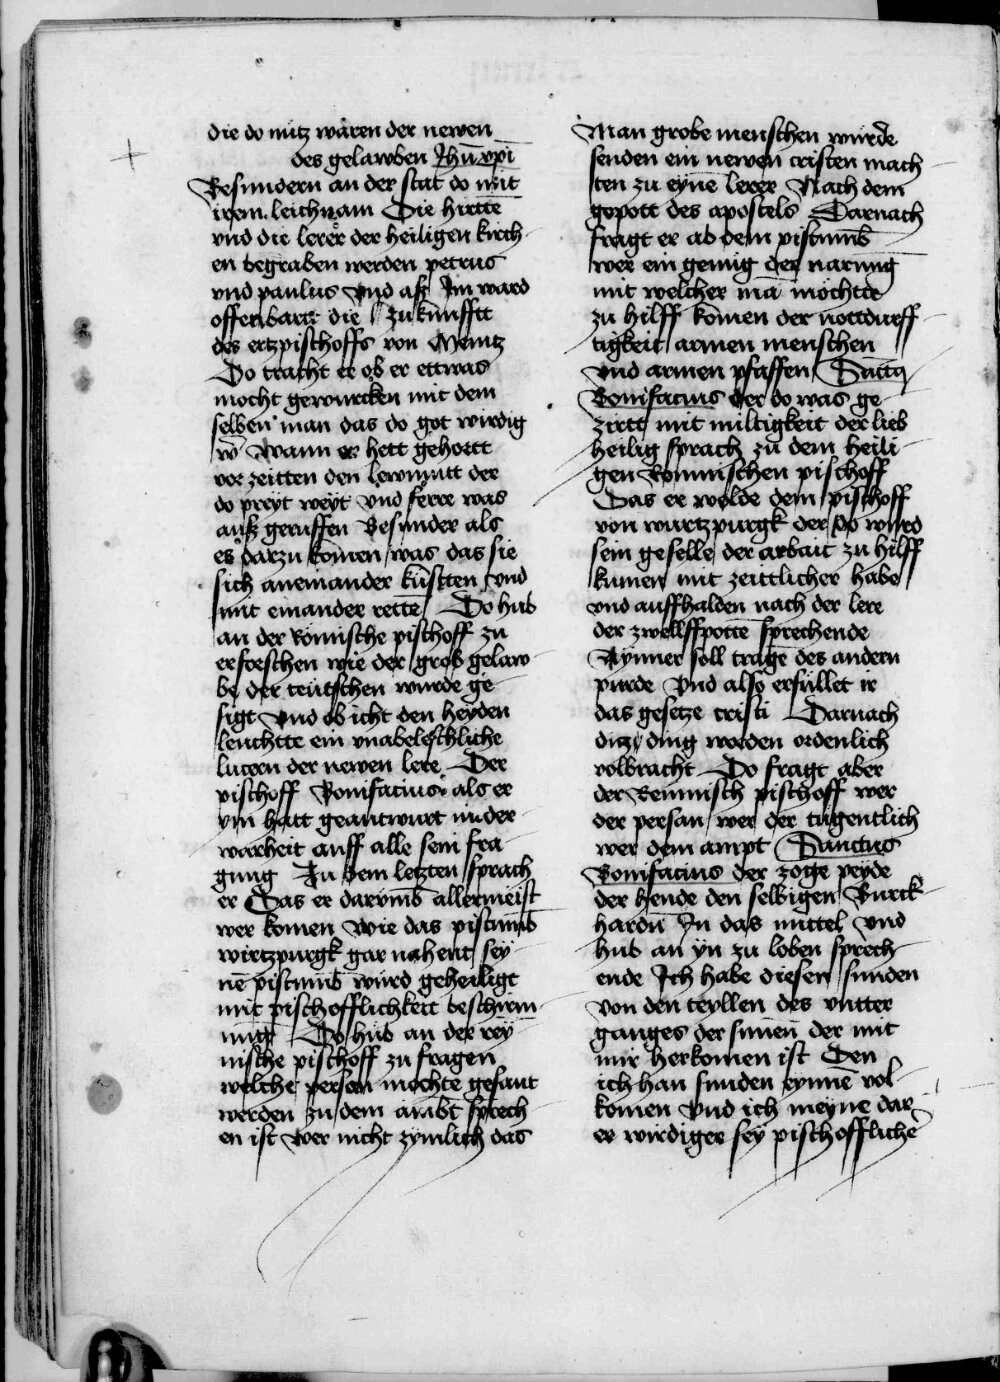 die do nütz waren der newen
des gelawben Jhū xpī
Besundern an der stat do mit
irem leichnam Die hirtte
vnd die lerer der heiligen kirch
en begraben werden petrus
vnd paulus Vnd als Im ward
offenbart die zukunfft
des ertzpischoffs von Mentz
Do tracht er ob er ettwas
mocht gewurcken mit dem
selben man das do got wirdig
w Wann er hett gehortt
vor zeitten den lewmutt der
do preyt weyt vnd ferre was
auß geruffen Besunder als
es darzu komen was das sie
sich aneinander kustten vnd
mit einander rette Do hub
an der Römische pischoff zu
erforschen wie der grob gelaw
be der teutschen wurde ge
sigt vnd ob icht den heyden
leuchtte ein vnabeleschliche
lucern der newen lere Der
pischoff Bonifacius als er
ym hatt geantwurt in der
warheit auff alle sein fra
gung In dem letzten sprach
er Das er darumb allermeist
wer komen Wie das pistumb
wirtzpurgk gar nahent sey
nē pistumb würd geheiligt
mit pischofflichkeit beschirm
ung Do hub an der röy
mische pischoff zu fragen
welche person mochte gesant
werden zu dem arabt sprech
en ist Wer nicht zymlich das
Man grobe menschen wurde
senden ein newen cristen mach
ten zu eynē lerer Nach dem
gepott des apostels Darnach
fragt er ab dem pistumb
wer ein genug der narung
mit welcher mā möchtte
zu hilff komen der nottdurff
tigkeit armen menschen
vnd armen pfaffen Sanctus
Bonifacius der do was ge
zirtt mit miltigkeit der lieb
heilig sprach zu dem heili
gen Romnischen pischoff
Das er wolde dem pischoff
von wurtzpurgk der do wurd
sein geselle der arbait zu hilff
kumen mit zeittlicher habe
vnd auffhalden nach der lere
der zwellffpotte sprechende
Aynner soll tragē des andern
purde Vnd also erfullet ir
das gesetze cristi Darnach
ditz ding worden ordenlich
volbracht Do fragt aber
der Remnisch pischoff wer
der persan wer der tugentlich
wer dem ampt Sanctus
Bonifacius der zoge peyde
der hende den selbigen Burck
hardū In das mittel vnd
hub an yn zu loben sprech
ende Ich habe diesen funden
von den teyllen des vntter
ganges der sunen der mit
mir herkomen ist Den
ich han funden eynnē vol
komen Vnd ich meyne dar
er wirdiger sey pischoffliche